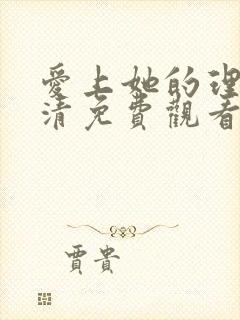 愛上她的理
清免費觀看
賈貴